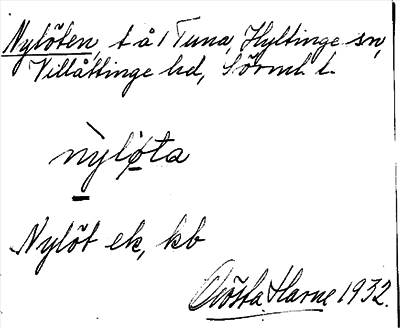 Nylöten, t å 1 Tuna, Hyltinge sn,
Villåttinge hd, Sörml. l.
nyløta
Nylöt ek, kb
Gösta Harne 1932.